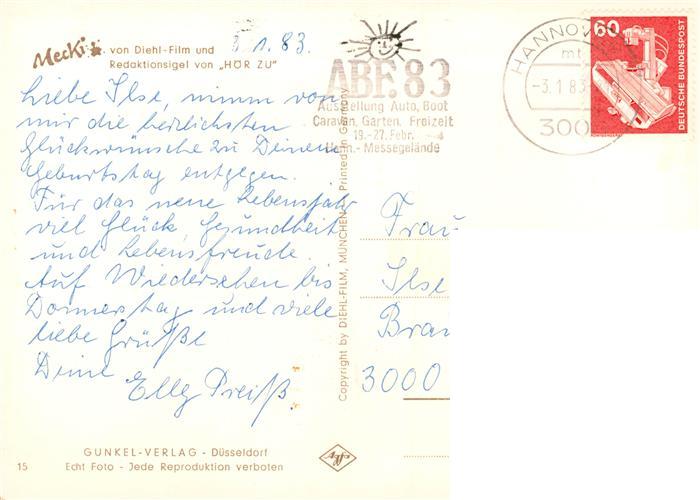 Mecki von Diehl-Film und
Redaktionsigel von „HÖR ZU"
3.1.83.
Liebe Ilse, nimm von
mir die herzlichsten
Glückwünsche zu Deinem
Geburtstag entgegen.
Für das neue Lebensjahr
viel Glück, Gesundheit
und Lebensfreude.
Auf Wiedersehen bis
Donnerstag und viele
liebe Grüße
Deine
Elly Preiß.
GUNKEL-VERLAG - Düsseldorf
15 Echt Foto - Jede Reproduktion verboten
Copyright by DIEHL-FILM, MÜNCHEN Printed in Germany
Agfa
ABF.83
Ausstellung Auto, Boot
Caravan, Garten, Freizeit
19.-27. Febr.
Hann.- Messegelände
HANNOV
mt
-3.1 83
300
60
DEUTSCHE BUNDESPOST
Frau
Ilse
Brau
3000